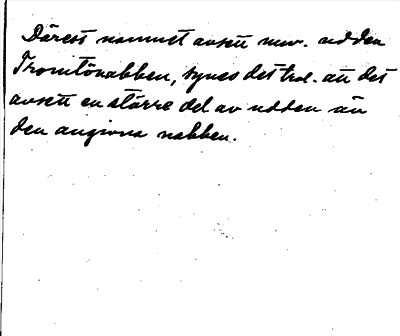 Därest namnet avsett nuv. udden
Tromtönabben, synes det trol. att det
avsett en större del av udden än
den angivna nabben.